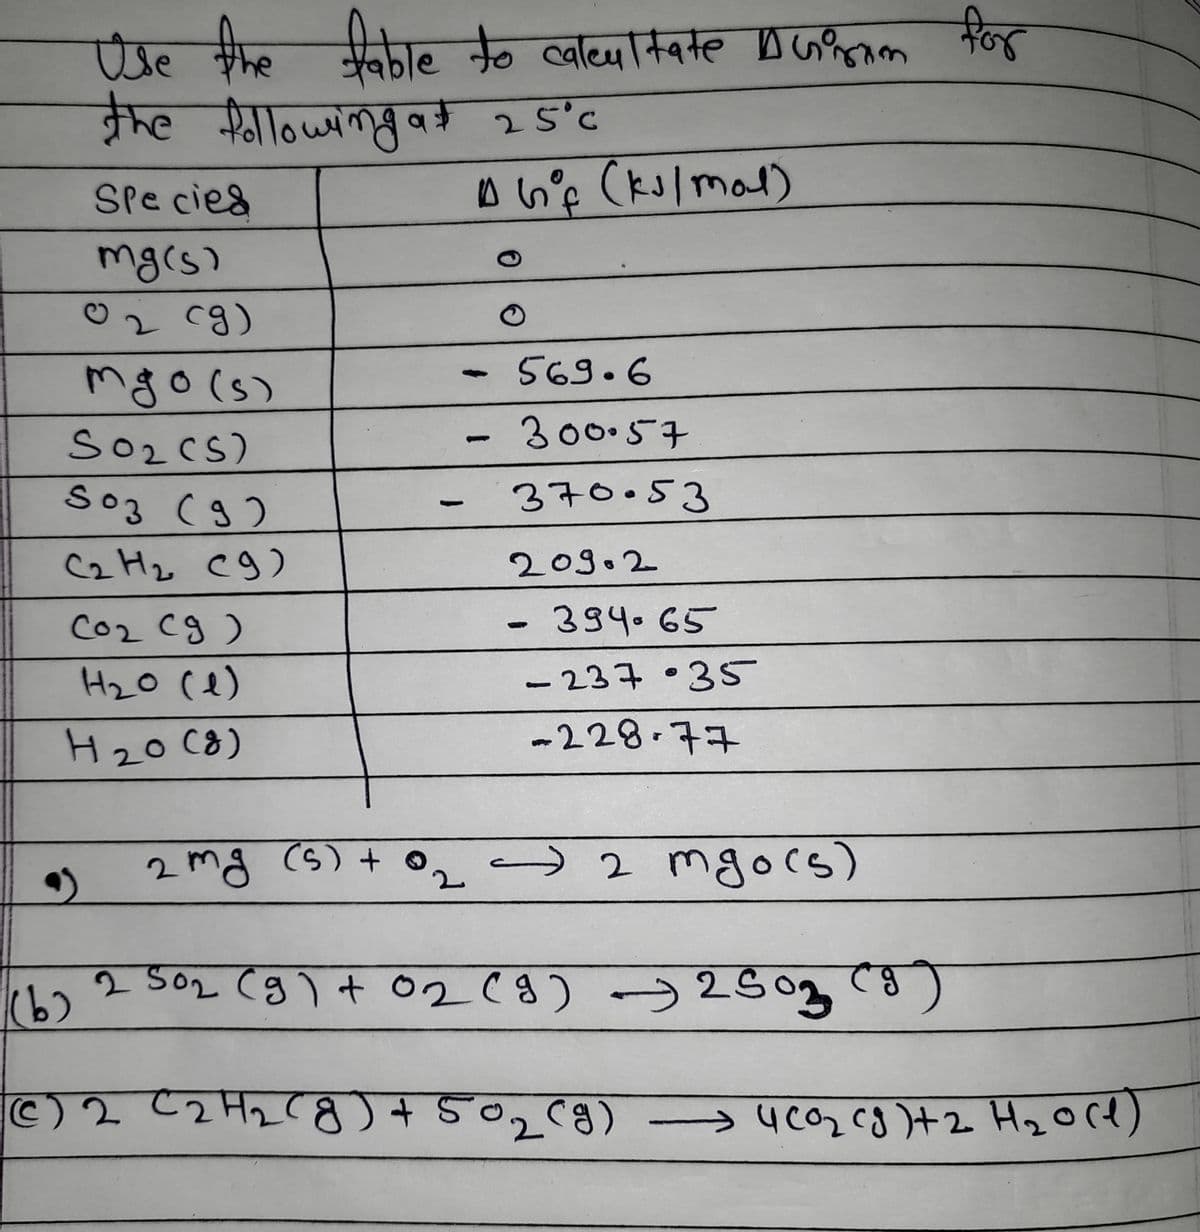 Use the table to calcultate ΔG°rxn for
the following at 25°c
Species ΔG°f (kJ/mol)
mg(s) 0
O2 (g) 0
mgo(s) - 569.6
SO2(S) - 300.57
SO3 (g) - 370.53
C2H2 (g) 209.2
CO2 (g) - 394.65
H2O (l) -237.35
H2O (g) -228.77
a) 2 mg (s) + O2 → 2 mgo(s)
(b) 2 SO2 (g) + O2 (g) → 2SO3 (g)
(c) 2 C2H2(g) + 5O2(g) → 4CO2(g)+2 H2O(l)